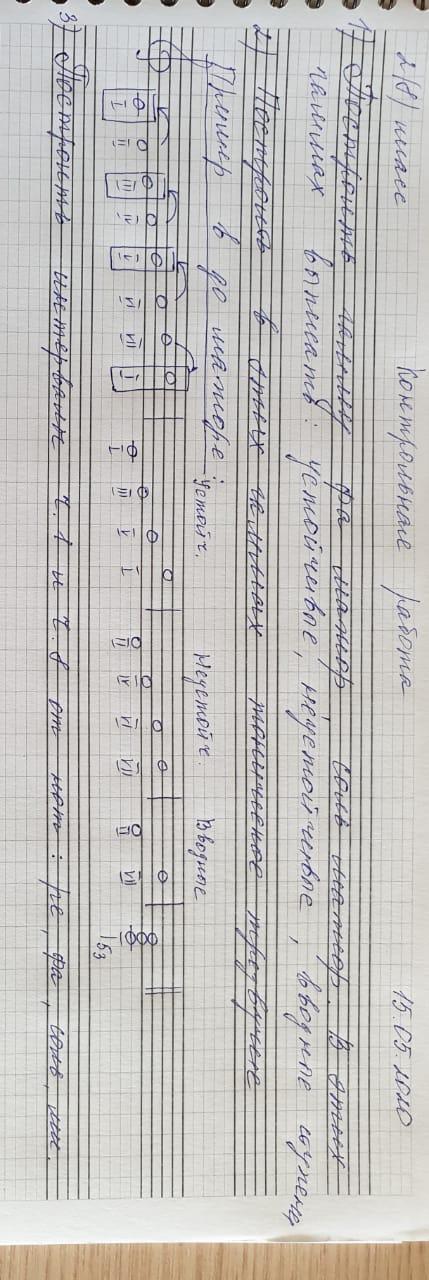 2(8) класс Контрольная работа 15.05.2020
1) Построить гамму фа мажор соль мажор. В этих
гаммах выписать: устойчивые, неустойчивые, вводные ступени
2) Построить в этих гаммах тоническое трезвучие
Пример в до мажоре: устойч. Неустойч. Вводные
I II III IV V VI VII I I III V I II IV VI VII II VII I53
3) Построить интервалы ч.1 и ч.8 от нот: ре, фа, соль, ми.